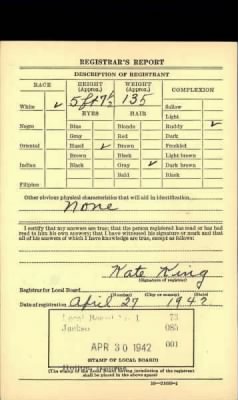 REGISTRAR'S REPORT
DESCRIPTION OF REGISTRANT
RACE
HEIGHT (Approx.)
WEIGHT (Approx.)
COMPLEXION
White ✓
5 ft 7½
135
Sallow
EYES
HAIR
Light
Negro
Blue
Blonde
Ruddy ✓
Gray
Red
Dark
Oriental
Hazel ✓
Brown
Freckled
Brown
Black
Light brown
Indian
Black
Gray ✓
Dark brown
Bald
Black
Filipino
Other obvious physical characteristics that will aid in identification
None
I certify that my answers are true; that the person registered has read or has had
read to him his own answers; that I have witnessed his signature or mark and that
all of his answers of which I have knowledge are true, except as follows:
Kate King
Registrar for Local Board
(Number) (City or county) (State)
Date of registration April 27 1942
Local Board No. 1 73
Jackson 085
APR 30 1942 001
STAMP OF LOCAL BOARD
(The stamp of the Local Board having jurisdiction of the registrant
shall be placed in the above space)